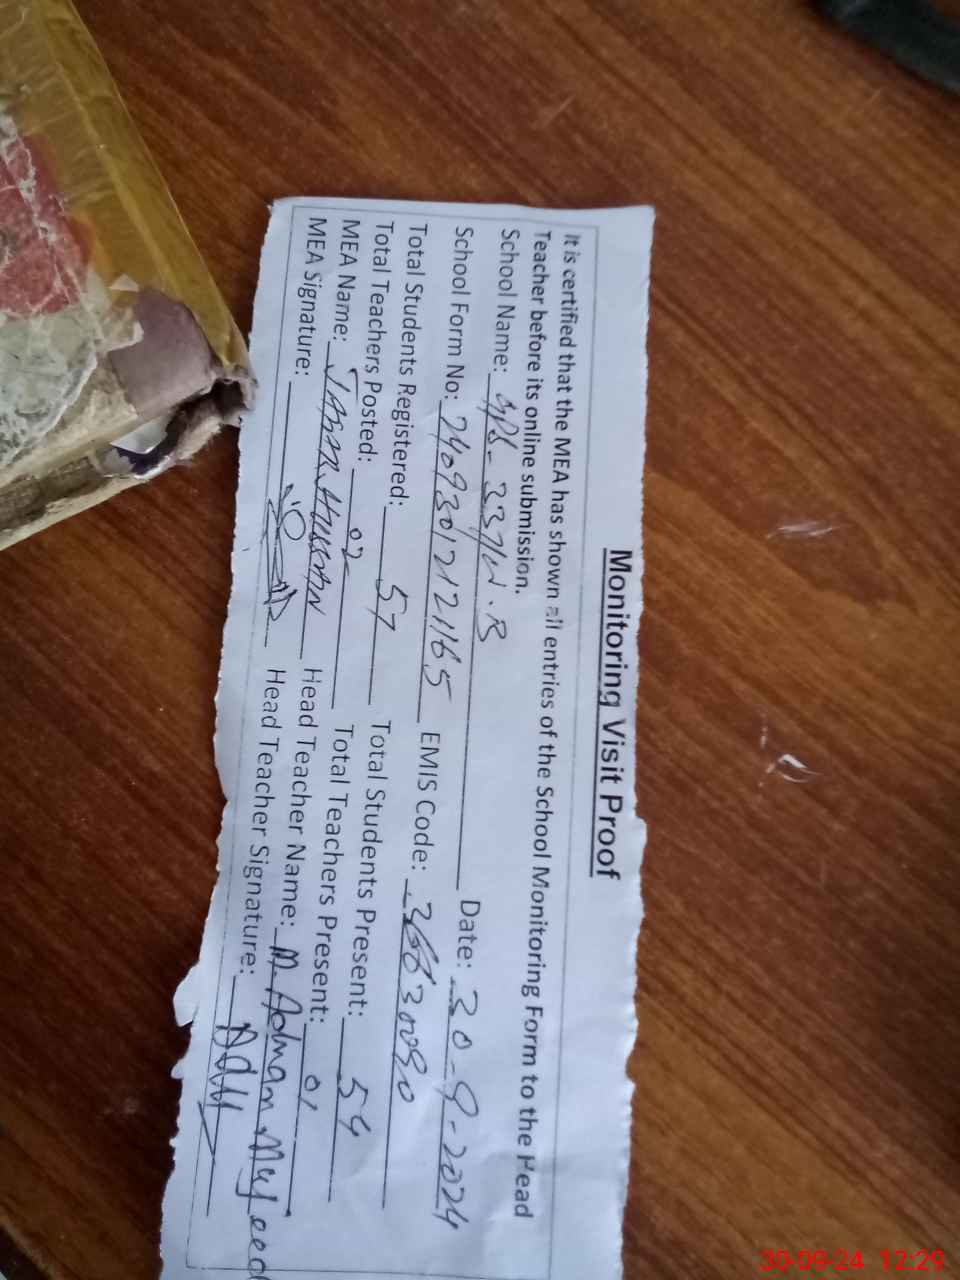 Monitoring Visit Proof
It is certified that the MEA has shown all entries of the School Monitoring Form to the Head
Teacher before its online submission.
School Name: GPS- 337/W.B Date: 30-9-2024
School Form No: 24093012121165 EMIS Code:
Total Students Registered: 57 Total Students Present: 54
Total Teachers Posted: 02 Total Teachers Present: 01
MEA Name: Hussain Head Teacher Name: M. Adnan
MEA Signature: Head Teacher Signature:
30-09-24 12:29